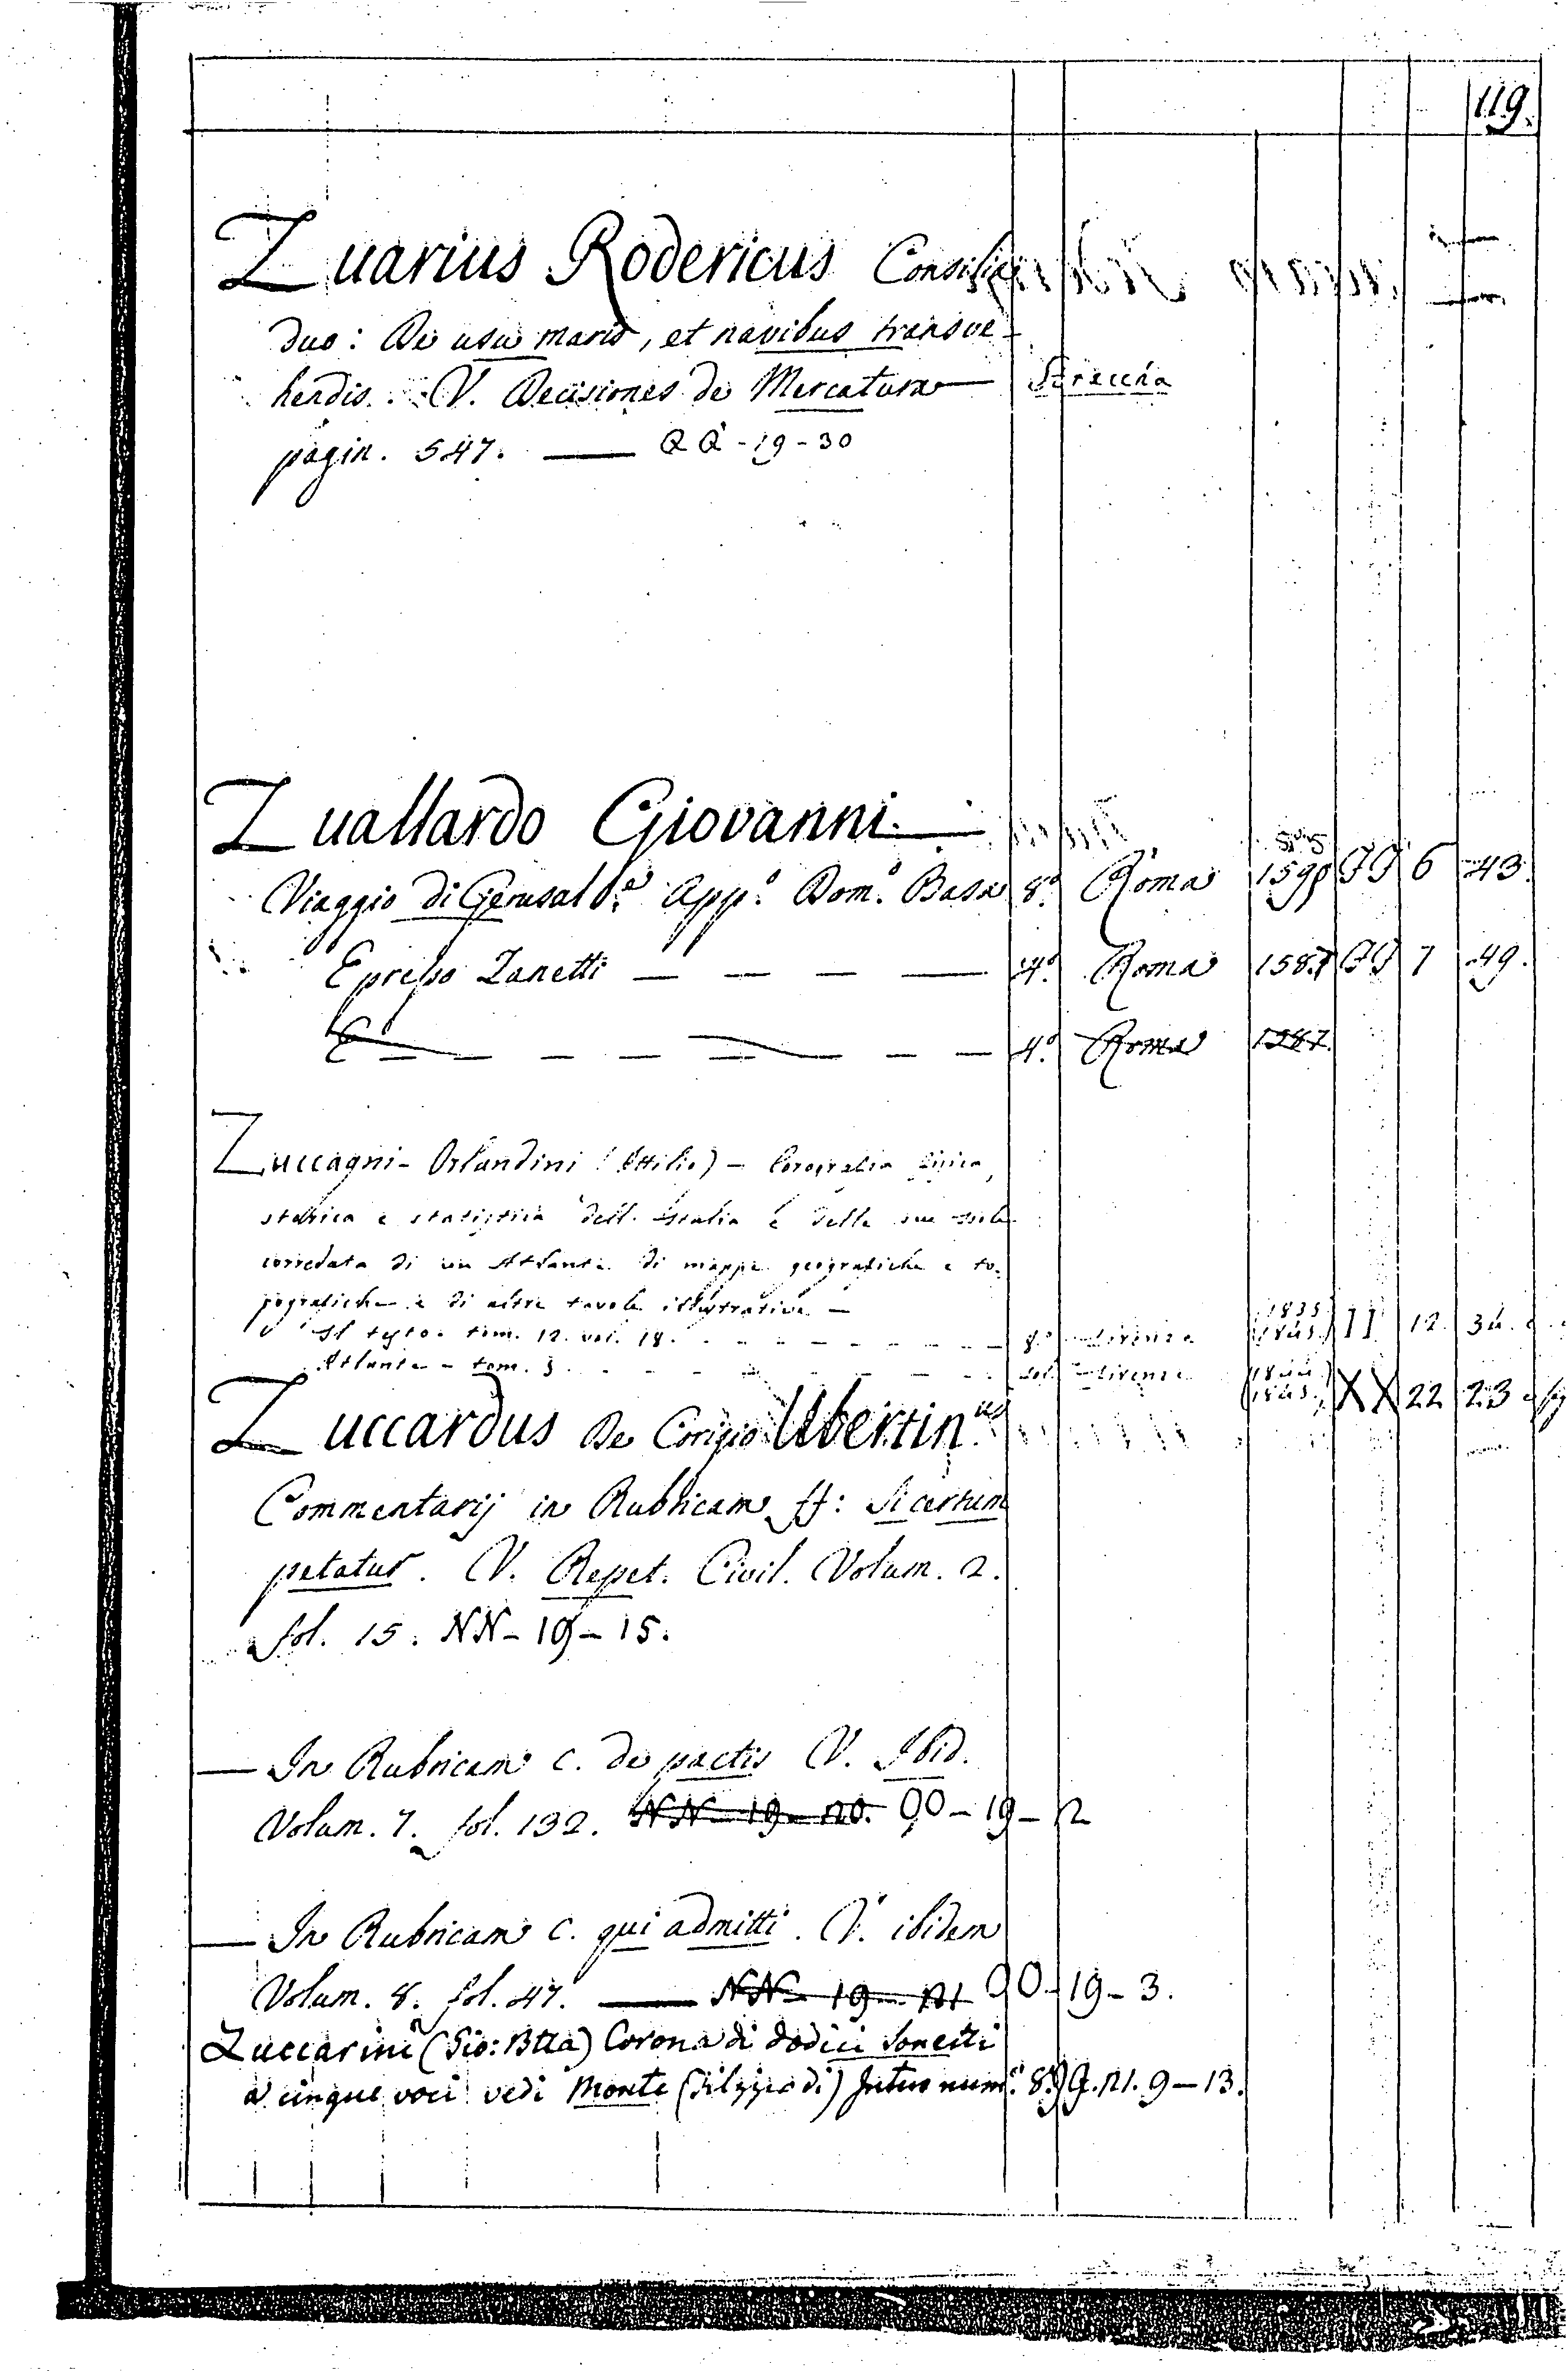 119.
Zuarius Rodericus Consilia
duo: De usu maris, et navibus transve-
hendis. V. Decisiones de Mercatura — Straccha
pagin. 547. — QQ-19-30
Zuallardo Giovanni. —
Viaggio di Gerusal. App.º Dom.º Basa 8.º Roma 6 43.
E presso Zanetti — — — — 4.º Roma 1587 7 49.
E — — — — — 4.º Roma 1587.
Zuccagni-Orlandini (Attilio) — Corografia fisica,
storica e statistica dell' Italia e delle sue isole
corredata di un Atlante di mappe geografiche e to-
pografiche e di altre tavole illustrative —
Il testo. tom. 12. vol. 18. 8.º Firenze 1835 1845. II 12. 34.
Atlante - tom. 3. fol. Firenze 1845. XX 22 23
Zuccardus De Corigio Ubertin.us
Commentarij in Rubricam ff: Si certum
petatur. V. Repet. Civil. Volum. 2.
fol. 15. NN-19-15.
— In Rubricam C. de pactis V. Ibid.
Volum. 7. fol. 132. NN-19-20. QO-19-2
— In Rubricam C. qui admitti. V. ibidem
Volum. 8. fol. 47. — NN-19-21 QO-19-3.
Zuccarini (Gio: Btta) Corona di dodici Sonetti
a cinque voci vedi Monte (Filippo di) Intus num.º 8.º 9-13.